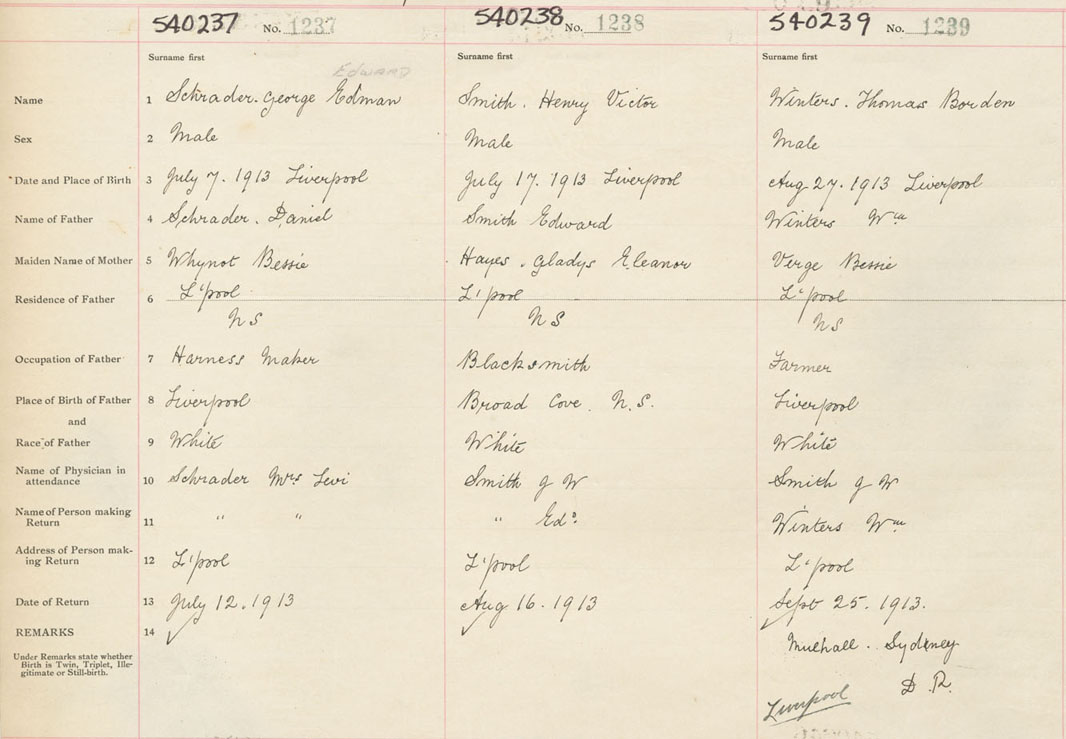 540237 No. 1237 540238 No. 1238 540239 No. 1239
Surname first Surname first Surname first
Edward
Name 1 Schrader. George Edman Smith. Henry Victor Winters. Thomas Borden
Sex 2 Male Male Male
Date and Place of Birth 3 July 7. 1913 Liverpool July 17. 1913 Liverpool Aug 27. 1913 Liverpool
Name of Father 4 Schrader. Daniel Smith Edward Winters Wm
Maiden Name of Mother 5 Whynot Bessie Hayes. Gladys Eleanor Verge Bessie
Residence of Father 6 L'pool L'pool L'pool
NS NS NS
Occupation of Father 7 Harness Maker Blacksmith Farmer
Place of Birth of Father 8 Liverpool Broad Cove. N.S. Liverpool
and
Race of Father 9 White White White
Name of Physician in
attendance 10 Schrader Mrs Levi Smith J W Smith J W
Name of Person making
Return 11 " " " Edd Winters Wm
Address of Person mak-
ing Return 12 L'pool L'pool L'pool
Date of Return 13 July 12. 1913 Aug 16. 1913 Sept 25. 1913.
REMARKS 14 ✓ ✓ ✓
Mulhall. Sydney
Under Remarks state whether
Birth is Twin, Triplet, Ille-
gitimate or Still-birth.
D.R.
Liverpool